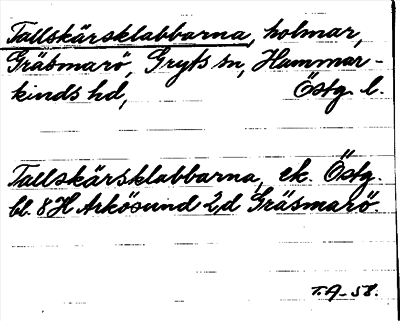 Tallskärsklabbarna, holmar,
Gräsmarö, Gryts sn, Hammar-
kinds hd, Östg. l.
Tallskärsklabbarna, ek. Östg.
bl. 8H Arkösund 2,d Gräsmarö.
T.A-58.